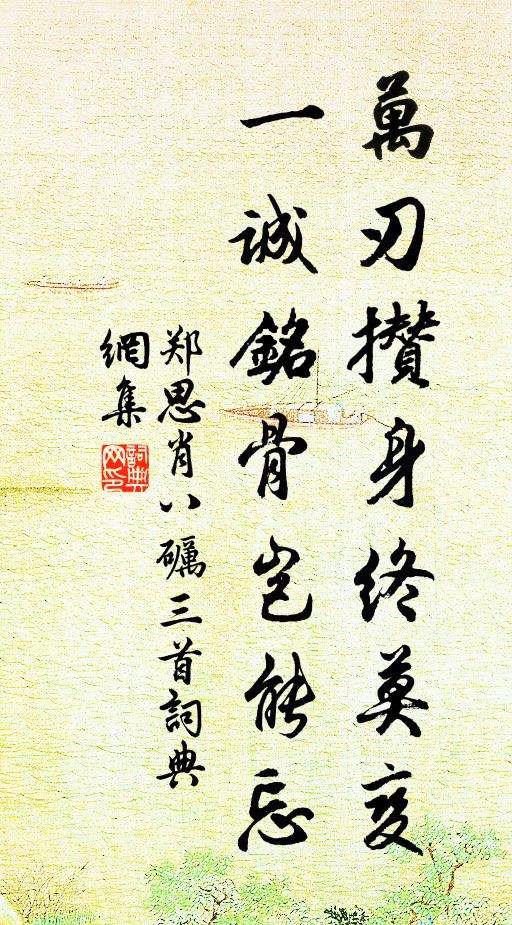 萬刃攢身終莫变
一誠銘骨岂能忘
郑思肖八礪三首詞典
網集
詞典网印